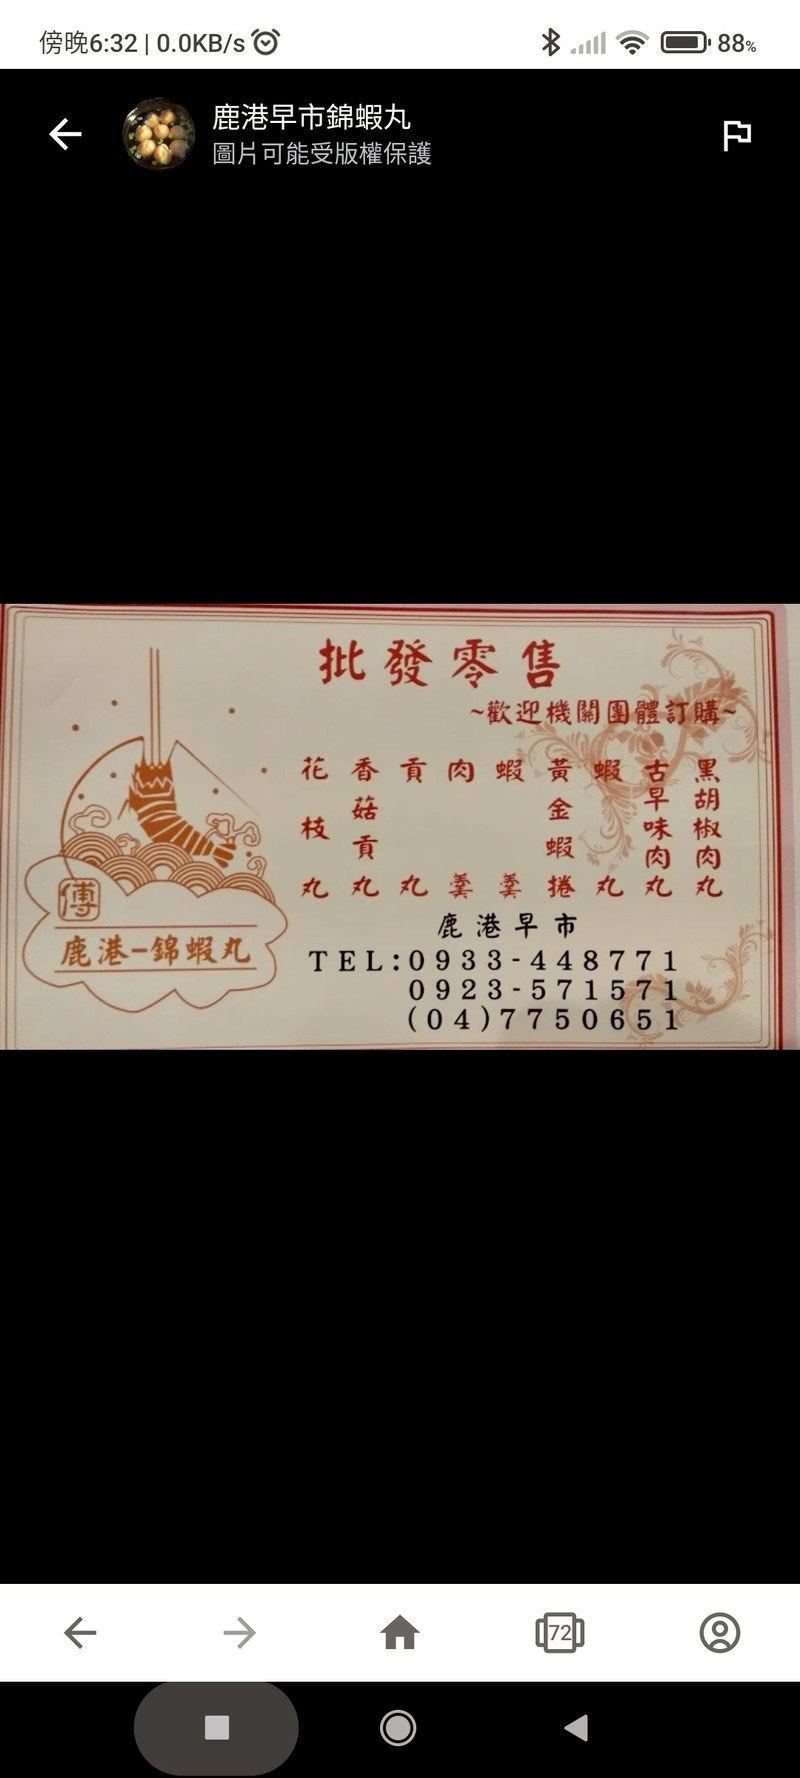 傍晚6:32 | 0.0KB/s
88%
鹿港早市錦蝦丸
圖片可能受版權保護
批發零售
~歡迎機關團體訂購~
黑胡椒肉丸
古早味肉丸
蝦丸
黃金蝦捲
蝦羹
肉羹
貢丸
香菇貢丸
花枝丸
傅
鹿港-錦蝦丸
鹿港早市
TEL:0933-448771
0923-571571
(04)7750651
72